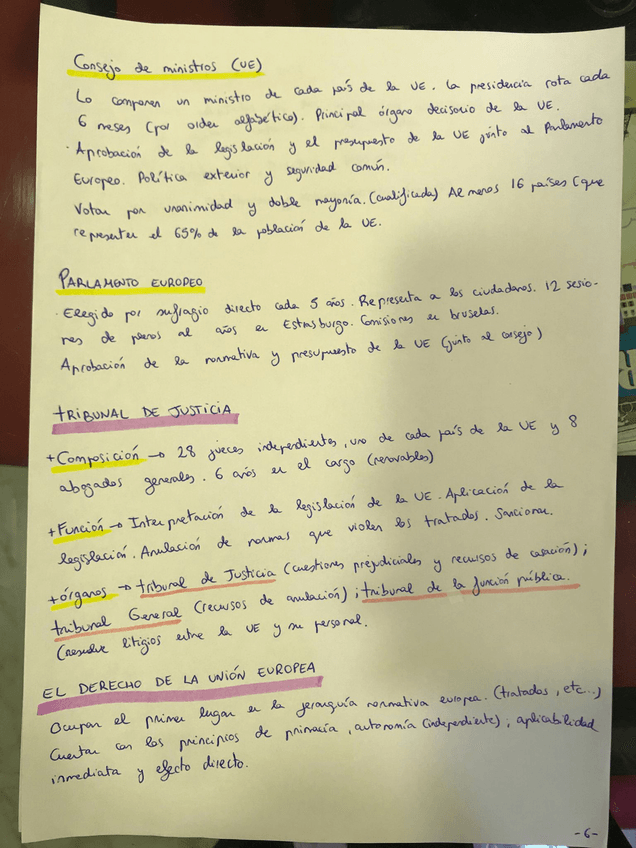 Consejo de ministros (UE)
Lo componen un ministro de cada país de la UE. La presidencia rota cada
6 meses (por orden alfabético). Principal órgano decisorio de la UE.
· Aprobación de la legislación y el presupuesto de la UE junto al Parlamento
Europeo. Política exterior y seguridad común.
Votan por unanimidad y doble mayoría. (cualificada) Al menos 16 países (que
representen el 65% de la población de la UE.
PARLAMENTO EUROPEO
· Elegido por sufragio directo cada 5 años. Representa a los ciudadanos. 12 sesio-
nes de plenos al años en Estrasburgo. Comisiones en bruselas.
Aprobación de la normativa y presupuesto de la UE (junto al consejo)
TRIBUNAL DE JUSTICIA
+ Composición → 28 jueces independientes, uno de cada país de la UE y 8
abogados generales. 6 años en el cargo (renovables)
+ Función → Interpretación de la legislación de la UE. Aplicación de la
legislación. Anulación de normas que violen los tratados. Sancionar.
+ órganos → tribunal de Justicia (cuestiones prejudiciales y recursos de casación);
tribunal General (recursos de anulación); tribunal de la función pública.
(resuelve litigios entre la UE y su personal.
EL DERECHO DE LA UNIÓN EUROPEA
Ocupan el primer lugar en la jerarquía normativa europea. (tratados, etc...)
Cuentan con los principios de primacía, autonomía (independiente), aplicabilidad
inmediata y efecto directo.
-6-